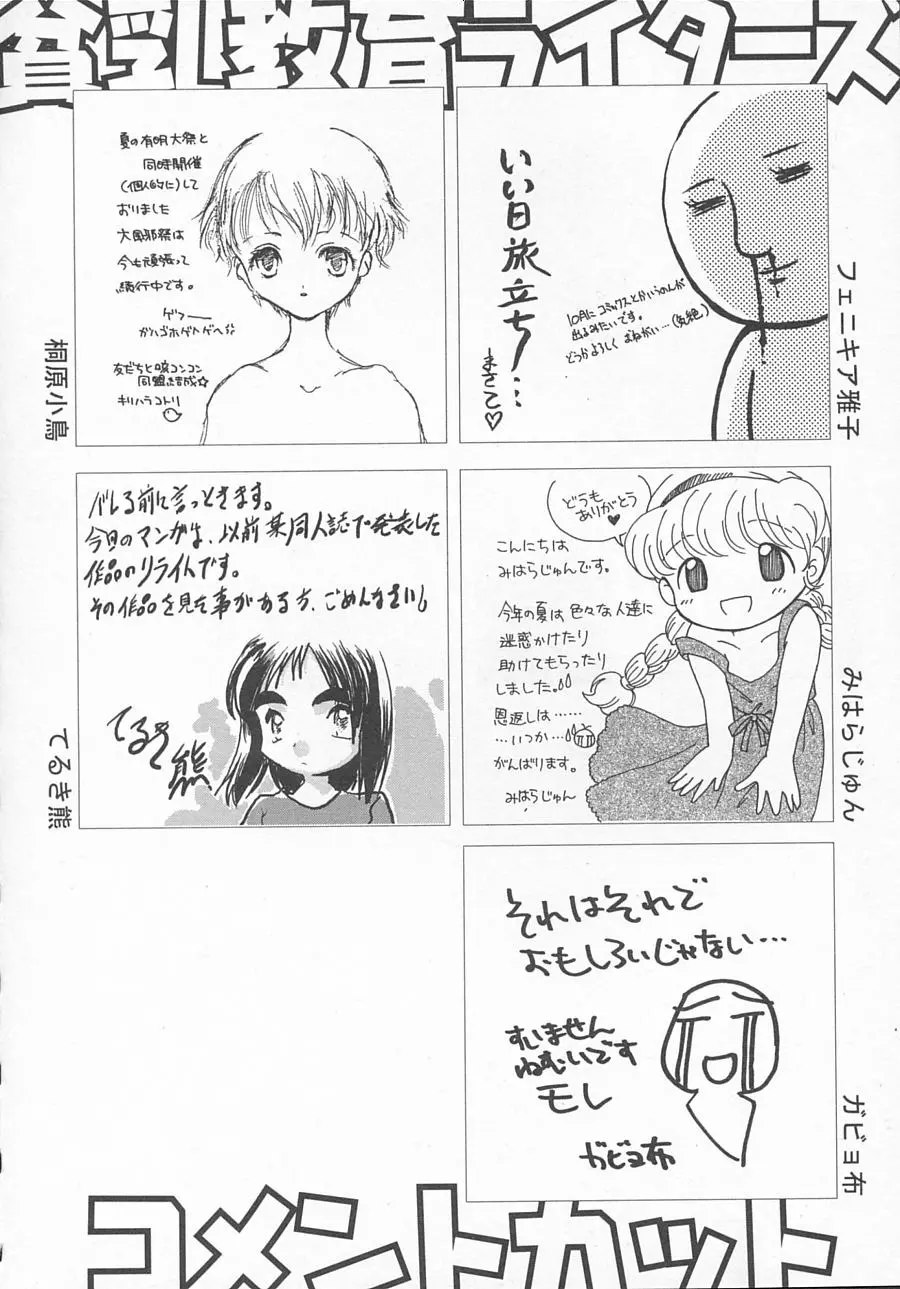 貧乳教育ライターズ
いい日旅立ち…
まさこ♡
10月にコミックスとかいうのんが
出るみたいです。
どうかよろしくおねがい…(気絶)
フェニキア雅子
夏の有明大祭と
同時開催
(個人的に)して
おりました
大風邪祭は
今も頑張って
続行中です。
ゲフー
ガハゴホゲヘゲヘ
友だちと咳コンコン
同盟結成☆
キリハラコトリ
桐原小鳥
どうも
ありがとう
♥
こんにちは
みはらじゅんです。
今年の夏は色々な人達に
迷惑かけたり
助けてもらったり
しました。
恩返しは……
……いつか…
がんばります。
みはらじゅん
みはらじゅん
バレる前に言っときます。
今回のマンガは、以前某同人誌で発表した
作品のリライトです。
その作品を見た事がある方、ごめんなさい。
てるき熊
てるき熊
それはそれで
おもしろいじゃない…
すいません
ねむいです
モレ
ガビョ布
ガビョ布
コメントカット